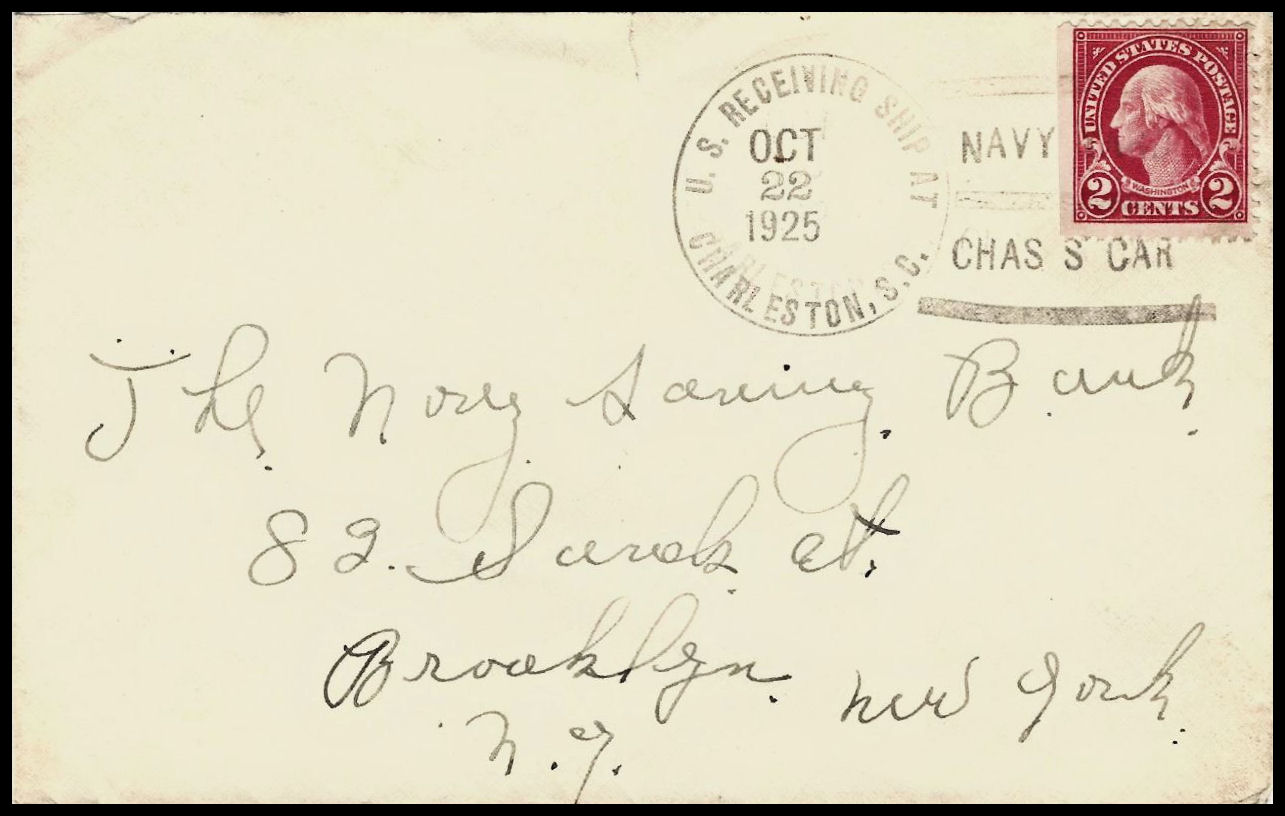 U. S. RECEIVING SHIP AT
CHARLESTON, S.C.
OCT
22
1925
NAVY
CHAS S CAR
UNITED STATES POSTAGE
WASHINGTON
2 CENTS 2
The Navy Saving Bank
82. Sands St.
Brooklyn. New York.
N.Y.